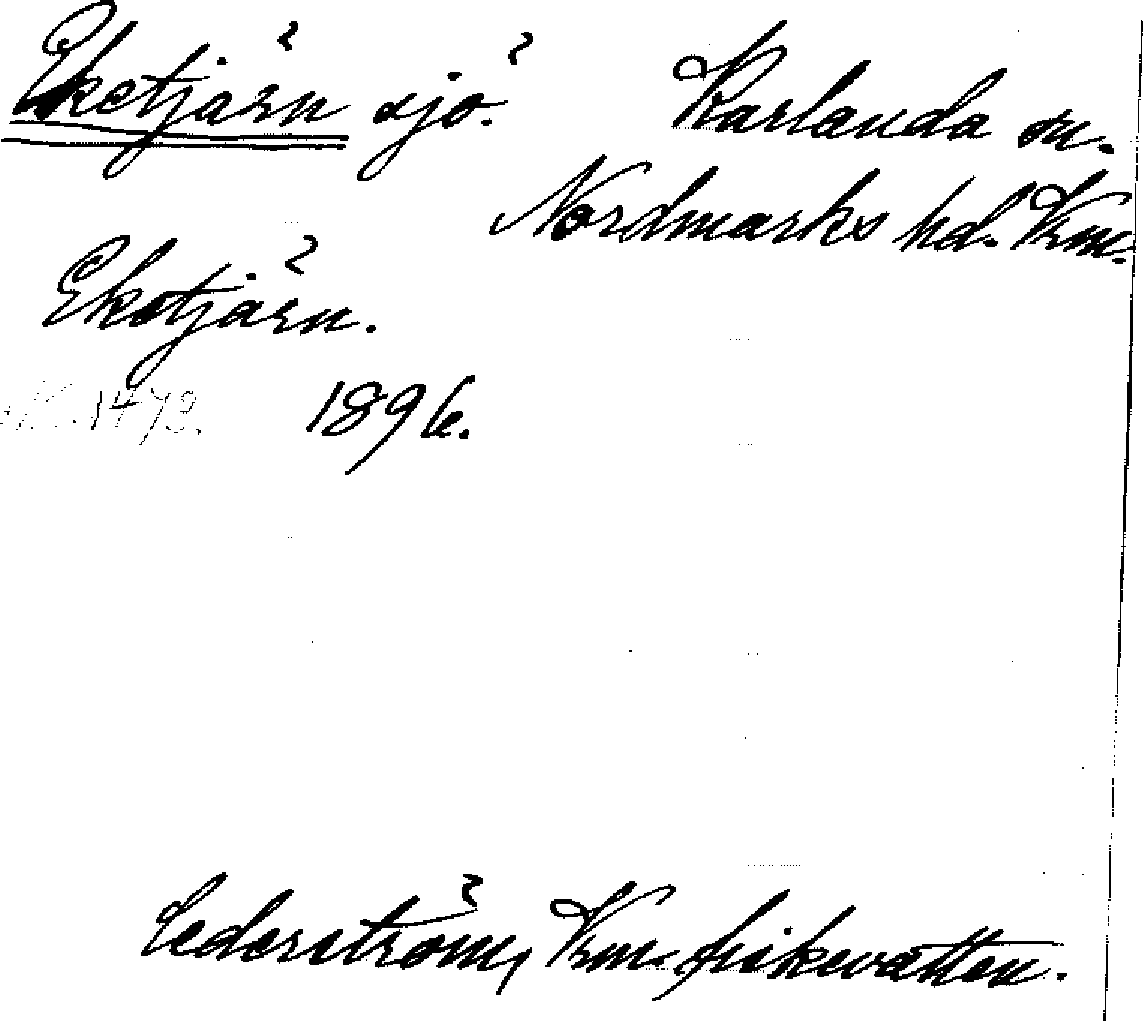 Eketjärn sjö. Karlanda sn.
Nordmarks hd. Vrm.
Ekotjärn.
1896.
Cederström, Vrm. fiskevatten.